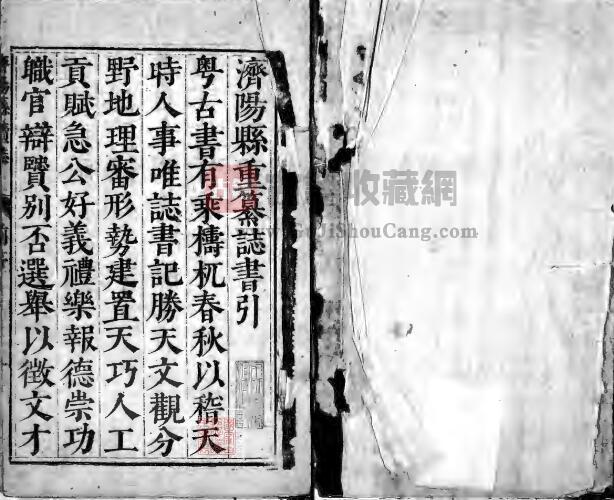 濟陽縣重纂誌書引
粵古書有乘檮杌春秋以稽天
時人事唯誌書記勝天文觀分
野地理審形勢建置天巧人工
貢賦急公好義禮樂報德崇功
職官辯賢別否選舉以徵文才
收藏網
JiShouCang.com